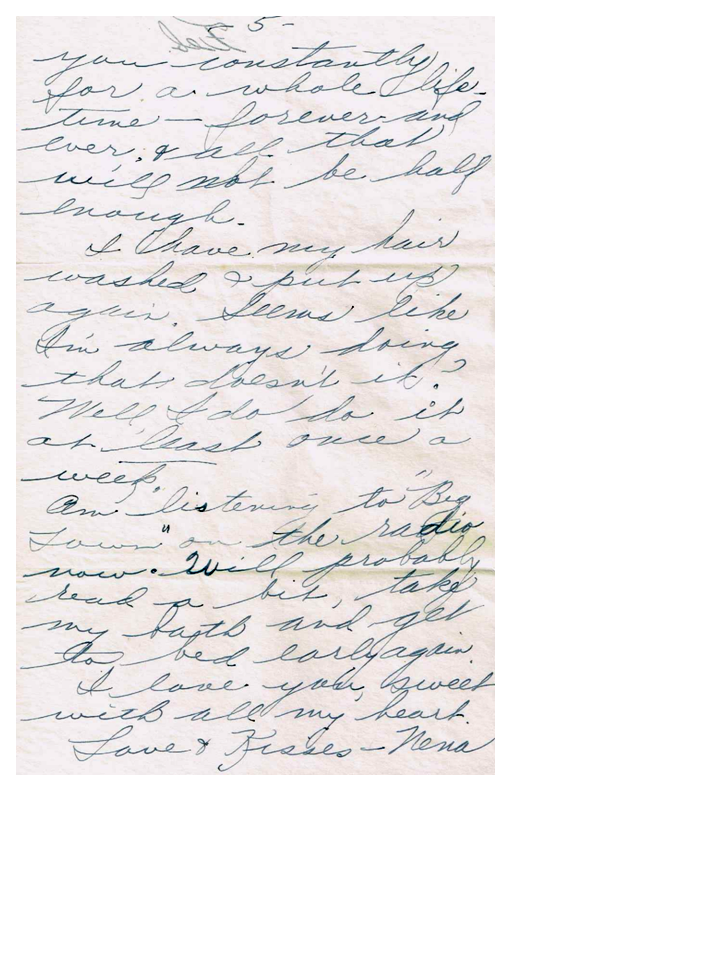 5-
you constantly
for a whole life-
time — forever and
ever, & all that
will not be half
enough.
I have my hair
washed & put up
again. Seems like
I'm always doing
that doesn't it?
Well I do do it
at least once a
week.
Am listening to "Big
Town" on the radio
now. Will probably
read a bit, take
my bath and get
to bed early again
I love you, sweet
with all my heart.
Love & Kisses — Nena